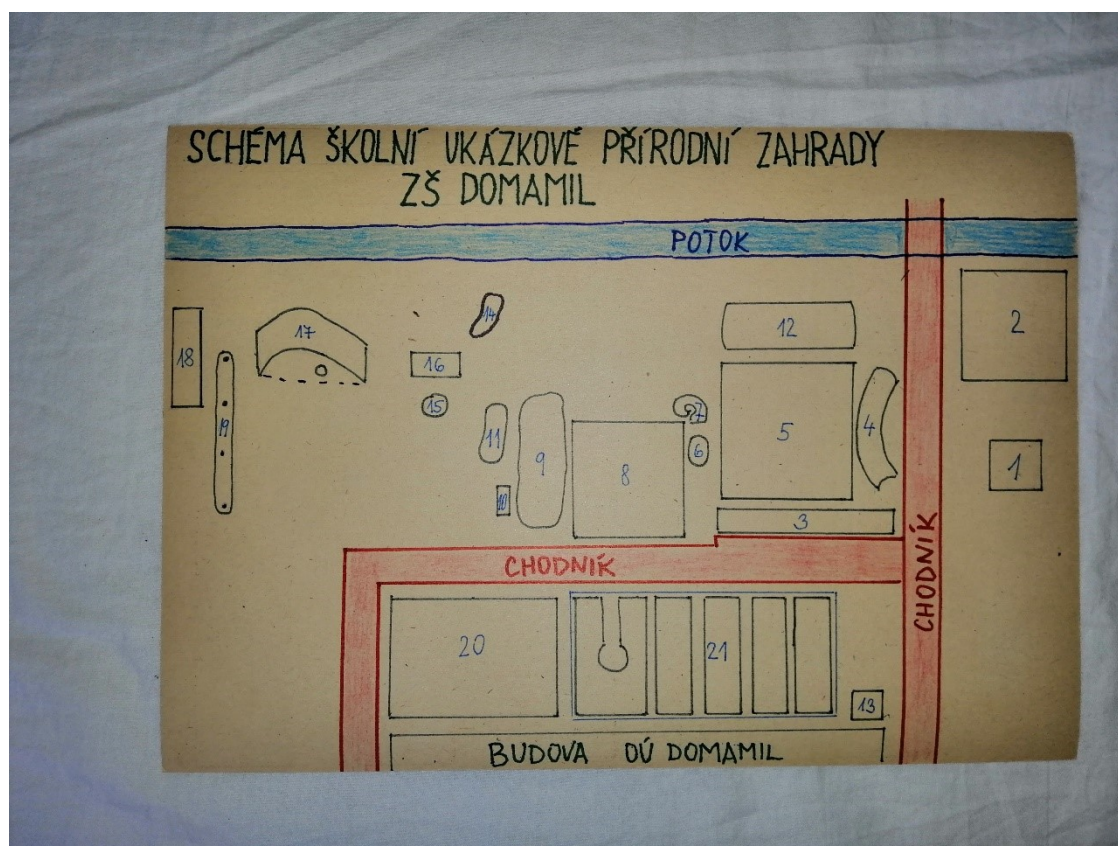 SCHÉMA ŠKOLNÍ UKÁZKOVÉ PŘÍRODNÍ ZAHRADY
ZŠ DOMAMIL
POTOK
14
17
18
12
2
16
15
7
19
11
9
8
6
5
4
1
10
3
CHODNÍK
CHODNÍK
20
21
13
BUDOVA OÚ DOMAMIL